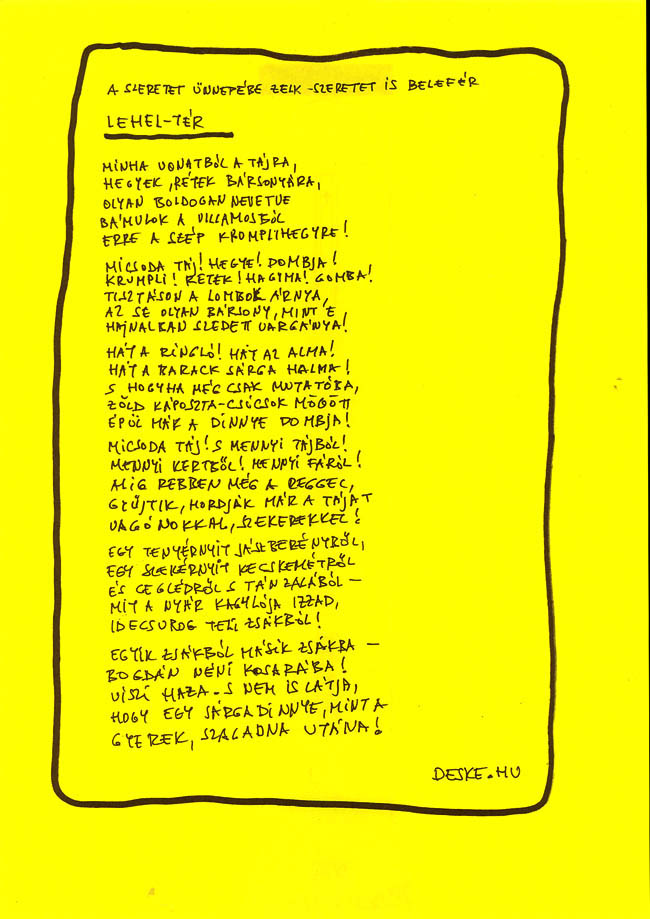 A SZERETET ÜNNEPÉBE ZELK-SZERETET IS BELEFÉR
LEHEL-TÉR
MINHA VONATBÓL A TÁJRA,
HEGYEK, RÉTEK BÁRSONYÁRA,
OLYAN BOLDOGAN NEVETVE
BÁMULOK A VILLAMOSBÓL
ERRE A SZÉP KROMPLIHEGYRE!
MICSODA TÁJ! HEGYE! DOMBJA!
KRUMPLI! RETEK! HAGYMA! GOMBA!
TISZTÁSON A LOMBOK ÁRNYA,
AZ SE OLYAN BÁRSONY, MINT E
HAJNALBAN SZEDETT VARGÁNYA!
HÁT A RINGLÓ! HÁT AZ ALMA!
HÁT A BARACK SÁRGA HALMA!
S HOGYHA MÉG CSAK MUTATÓBA,
ZÖLD KÁPOSZTA-CSÚCSOK MÖGÖTT
ÉPÜL MÁR A DINNYE DOMBJA!
MICSODA TÁJ! S MENNYI TÁJBÓL!
MENNYI KERTBŐL! MENNYI FÁRÓL!
ALIG REBBEN MÉG A REGGEL,
GYŰJTIK, HORDJÁK MÁR A TÁJAT
VAGÓNOKKAL, SZEKEREKKEL!
EGY TENYÉRNYIT JÁSZBERÉNYRŐL,
EGY SZEKÉRNYIT KECSKEMÉTRŐL
ÉS CEGLÉDRŐL S TÁN ZALÁBÓL —
MIT A NYÁR KAGYLÓJA IZZAD,
IDECSUROG TELI ZSÁKBÓL!
EGYIK ZSÁKBÓL MÁSIK ZSÁKBA —
BOGDÁN NÉNI KOSARÁBA!
VISZI HAZA - S NEM IS LÁTJA,
HOGY EGY SÁRGADINNYE, MINT A
GYEREK, SZALADNA UTÁNA!
DESKE.HU